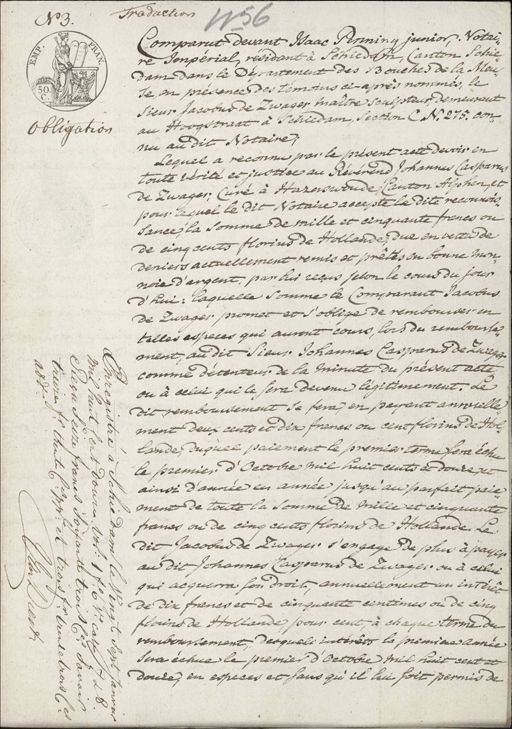 N°3.
Traduction
N°56
EMP. FRAN.
50. C.
Obligation
Comparut devant Isaac Penning junior, Notai-
re Impérial, résidant à Schiedam, Canton Schie-
dam dans le Département des Bouches de la Meu-
se, en présence des témoins ci-après nommés, le
Sieur Jacobus de Zwager maître sculpteur demeurant
au Hoogstraat à Schiedam, Section C. N° 275. con-
nu au dit Notaire;
Lequel a reconnu par le présent acte devoir en
toute vérité et justice au Révérend Johannes Casparus
de Zwager, Curé à Hazerswoude, Canton Alphen, et
pour lequel le dit Notaire accepte la dite reconnais-
sance, la Somme de mille et cinquante francs ou
de cinq cents florins de Hollande, due en vertu de
deniers actuellement remis et prêtés en bonne mon-
noie d'argent, par lui reçus selon le cours du jour
d'hui: laquelle Somme le Comparant Jacobus
de Zwager promet et s'oblige de rembourser en
telles especes qui auront cours, lors du rembourse-
ment, au dit Sieur Johannes Casparus de Zwager
comme détenteur de la minute du présent acte
ou à celui qui le sera devenu légitimement. Le
dit remboursement se fera en payant annuelle-
ment deux cents et dix francs ou cent florins de Hol-
lande, duquel paiement le premier terme sera échu
le premier d'Octobre mil huit cents et douze, et
ainsi d'année en année jusqu'au parfait paie-
ment de toute la Somme de mille et cinquante
francs ou de cinq cents florins de Hollande. Le
dit Jacobus de Zwager s'engage de plus à payer
au dit Johannes Casparus de Zwager ou à celui
qui acquerra son droit, annuellement un intérêt
de dix francs et de cinquante centimes ou de cinq
florins de Hollande pour cent, à chaque terme du
remboursement, desquels intérêts la premiere année
sera échue le premier d'Octobre mil huit cent et
douze, en especes et sans qu'il lui soit permis de
Enregistré à Schiedam le Vingt Sept Janvier
mil huit cent douze